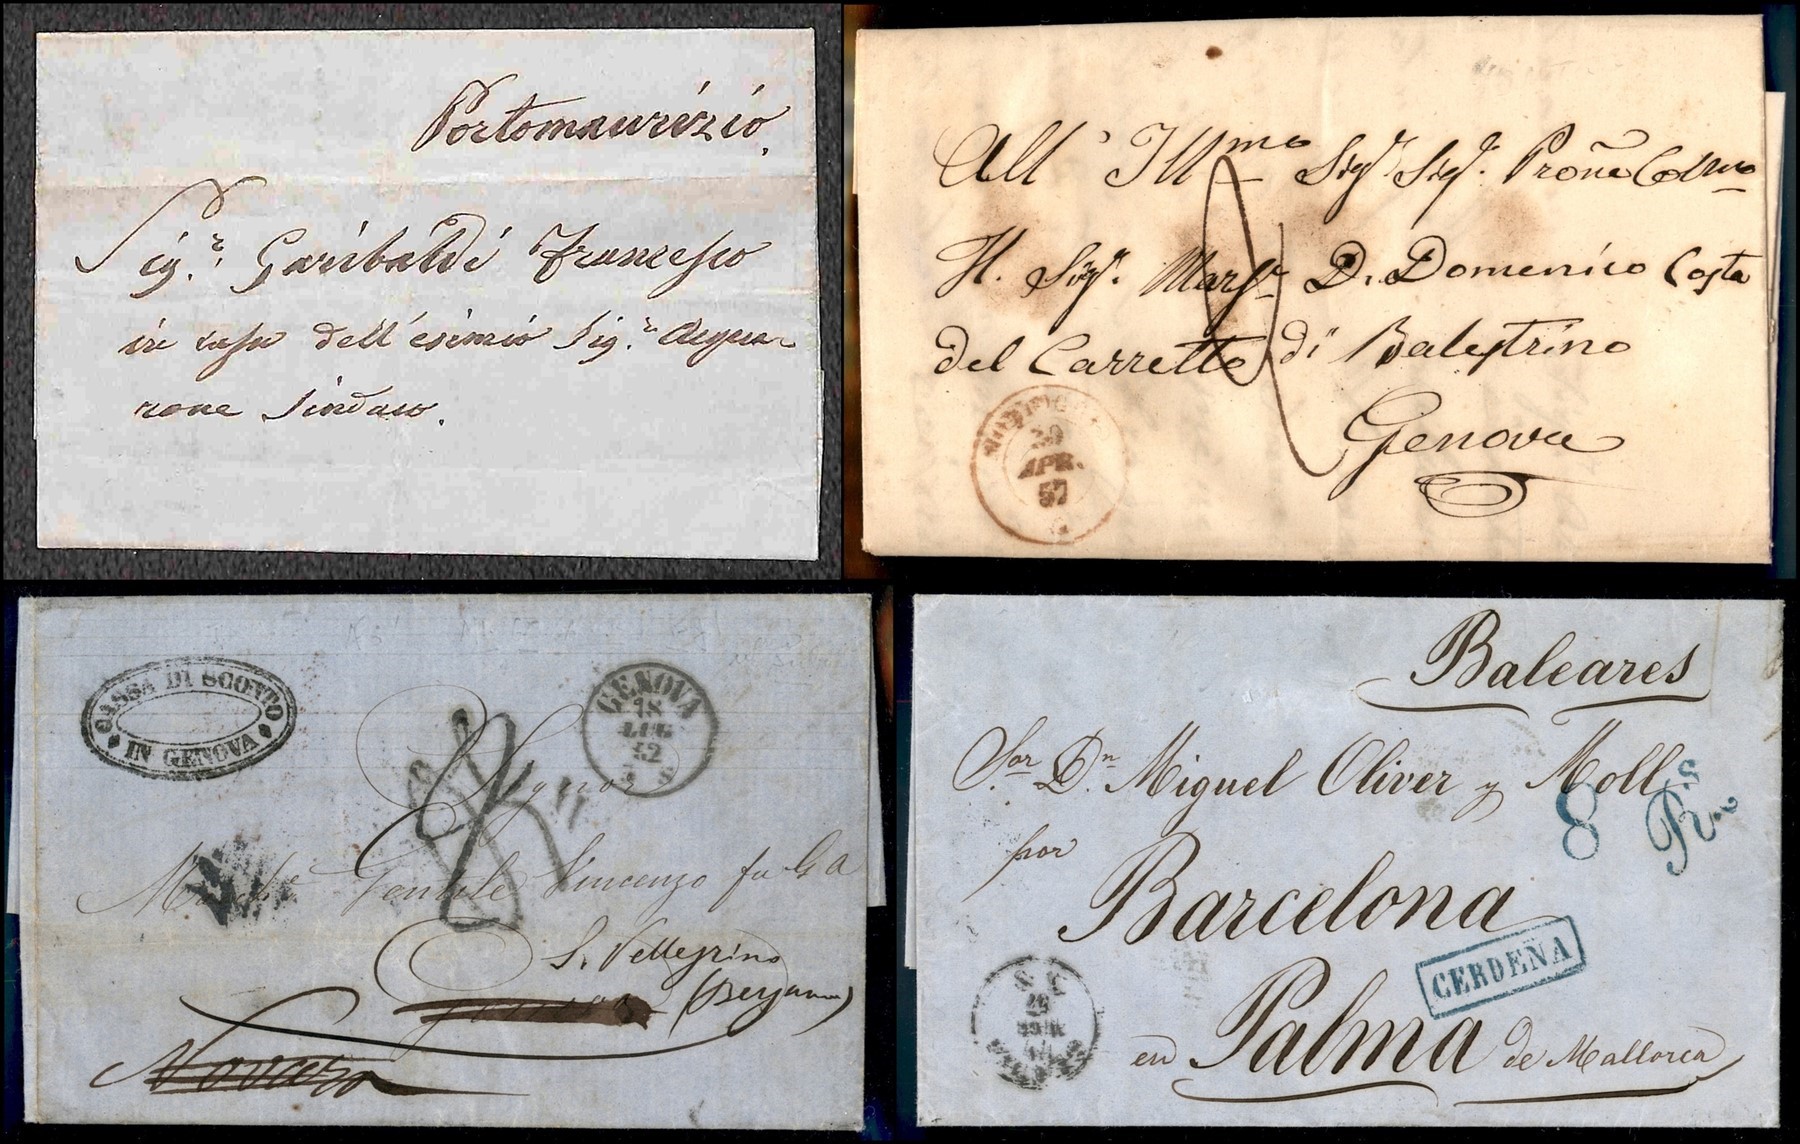 Portomaurizio.
Sig.r Garibaldi Francesco
in casa dell'esimio Sig.r Acqua-
rone Sindaco.
All' Ill.mo Sig.r Sig.r Prõne Colmo
Il Sig.r March.e D. Domenico Costa
del Carretto di Balestrino
Genova
20
APR.
57
CASSA DI SCONTO
IN GENOVA
GENOVA
18
LUG
52
Signor
March.e Gentile Vincenzo fu G. B
S. Pellegrino
(Bergamo)
Novara
Baleares
Sor. Dn. Miguel Oliver y Moll
8 Rs.
por
Barcelona
CERDEÑA
en Palma de Mallorca